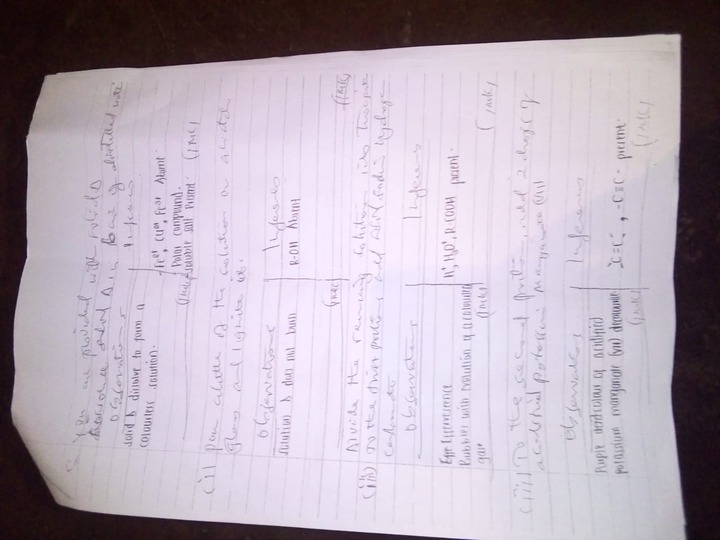 You are provided with solid
Dissolve solid in 10cm³ of distilled water
Observations Inferences
solid b dissolve to form a Fe²⁺, Cu²⁺, Fe³⁺ Absent.
colourless solution. Polar compound.
soluble salt Present. (1mk)
(i) pour of the solution on a watch
glass and ignite it.
Observations Inferences
solution b does not burn R-OH Absent
(1mk) (1mk)
Divide the remaining solution into two
(ii) To the first portion add sodium hydrogen
carbonate
Observations Inferences
Effervescence H⁺, H₃O⁺, R-COOH present.
Bubbles with evolution of a colourless
gas (1mk) (1mk)
(iii) To the second portion, add 2 drops of
acidified potassium manganate (VII)
Observations Inferences
Purple of acidified C=C, -C≡C- present.
potassium manganate (VII) (1mk)
(1mk)